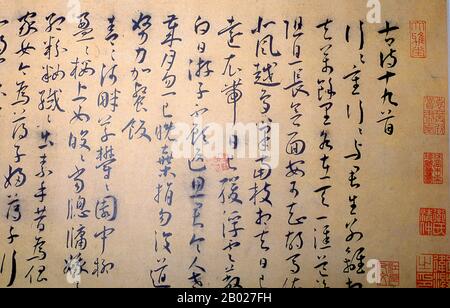 古詩十九首
行行重行行與君生別離相
去萬餘里各在天一涯道路
阻且長會面安可知胡馬依
北風越鳥巢南枝相去日已
遠衣帶日已緩浮雲蔽
白日遊子不顧返思君令人老
歲月忽已晚棄捐勿復道
努力加餐飯
青〻河畔草鬱〻園中柳
盈〻樓上女皎〻當窗牖娥
〻紅粉妝纖〻出素手昔為倡
家女今為蕩子婦蕩子行
alamy
Image ID: 2B027FH
www.alamy.com